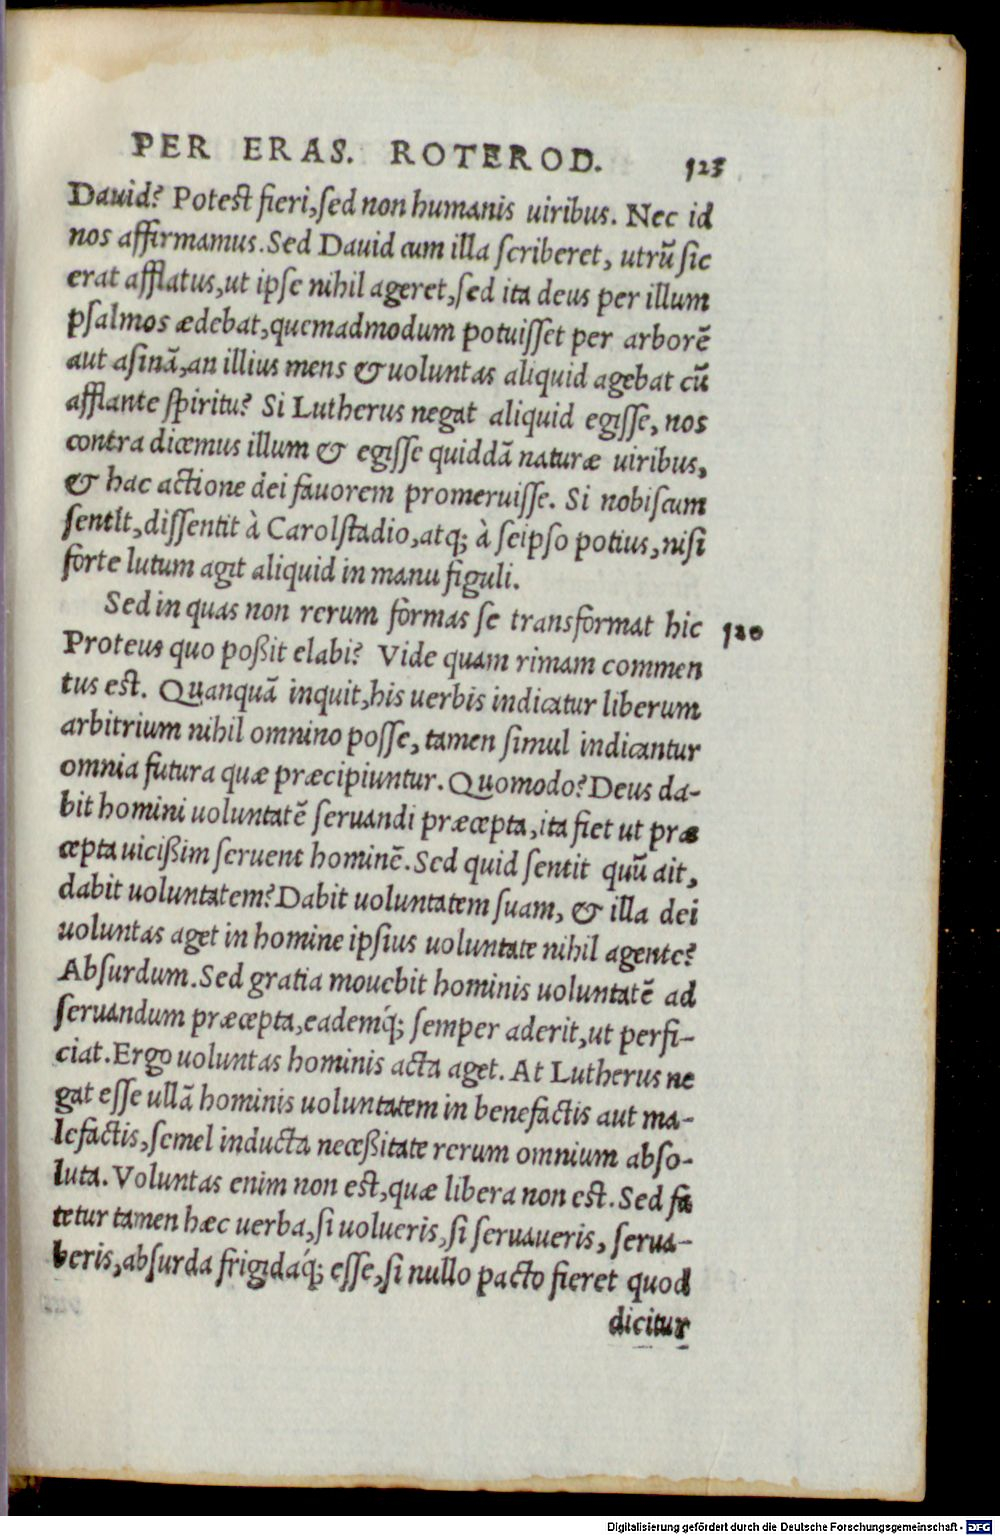 PER ERAS. ROTEROD. 123
Dauid? Potest fieri, sed non humanis uiribus. Nec id
nos affirmamus. Sed Dauid cum illa scriberet, utrũ sic
erat afflatus, ut ipse nihil ageret, sed ita deus per illum
psalmos ædebat, quemadmodum potuisset per arborẽ
aut asinã, an illius mens & uoluntas aliquid agebat cũ
afflante spiritu? Si Lutherus negat aliquid egisse, nos
contra dicemus illum & egisse quiddã naturæ uiribus,
& hac actione dei fauorem promeruisse. Si nobiscum
sentit, dissentit à Carolstadio, atq; à seipso potius, nisi
forte lutum agit aliquid in manu figuli.
Sed in quas non rerum formas se transformat hic 120
Proteus quo poßit elabi? Vide quam rimam commen
tus est. Quanquã inquit, his uerbis indicatur liberum
arbitrium nihil omnino posse, tamen simul indicantur
omnia futura quæ præcipiuntur. Quomodo? Deus da-
bit homini uoluntatẽ seruandi præcepta, ita fiet ut præ
cepta uicißim seruent hominẽ. Sed quid sentit quũ ait,
dabit uoluntatem? Dabit uoluntatem suam, & illa dei
uoluntas aget in homine ipsius uoluntate nihil agente?
Absurdum. Sed gratia mouebit hominis uoluntatẽ ad
seruandum præcepta, eademq́; semper aderit, ut perfi-
ciat. Ergo uoluntas hominis acta aget. At Lutherus ne
gat esse ullã hominis uoluntatem in benefactis aut ma-
lefactis, semel inducta neceßitate rerum omnium abso-
luta. Voluntas enim non est, quæ libera non est. Sed fa
tetur tamen hæc uerba, si uolueris, si seruaueris, serua-
beris, absurda frigidaq́; esse, si nullo pacto fieret quod
dicitur
Digitalisierung gefördert durch die Deutsche Forschungsgemeinschaft - DFG